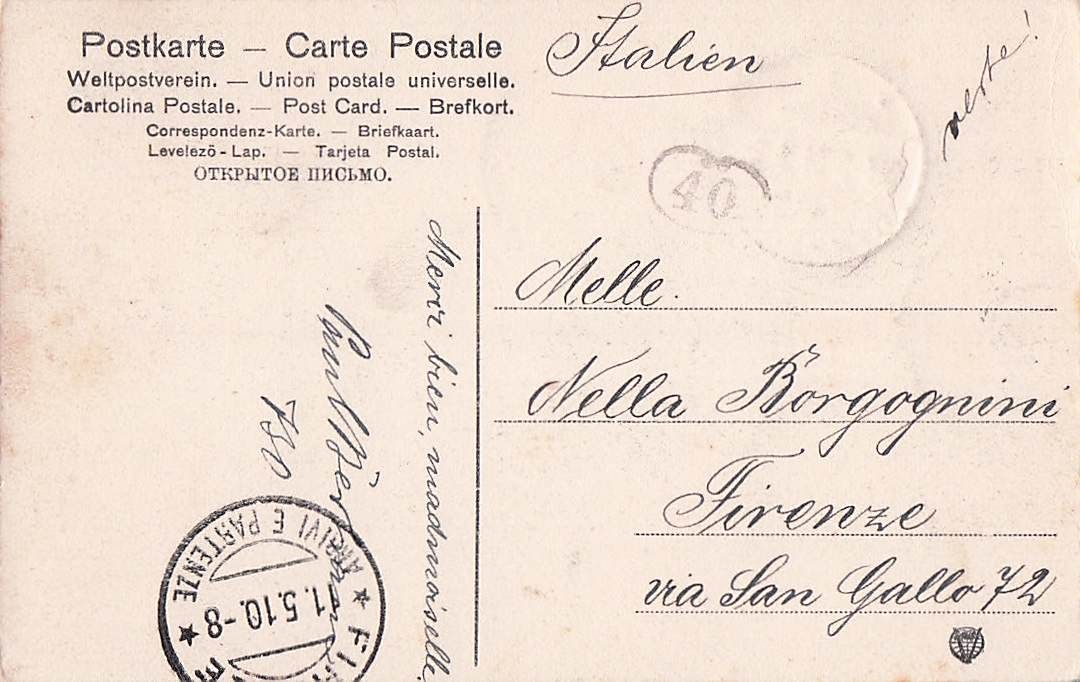 Postkarte — Carte Postale
Weltpostverein. — Union postale universelle.
Cartolina Postale. — Post Card. — Brefkort.
Correspondenz-Karte. — Briefkaart.
Levelező-Lap. — Tarjeta Postal.
ОТКРЫТОЕ ПИСЬМО.
Italien
40
Melle.
Nella Borgognini
Firenze
via San Gallo 72
Merci bien, madmoiselle.
Paul
ARRIVI E PARTENZE
1.5.10.-8